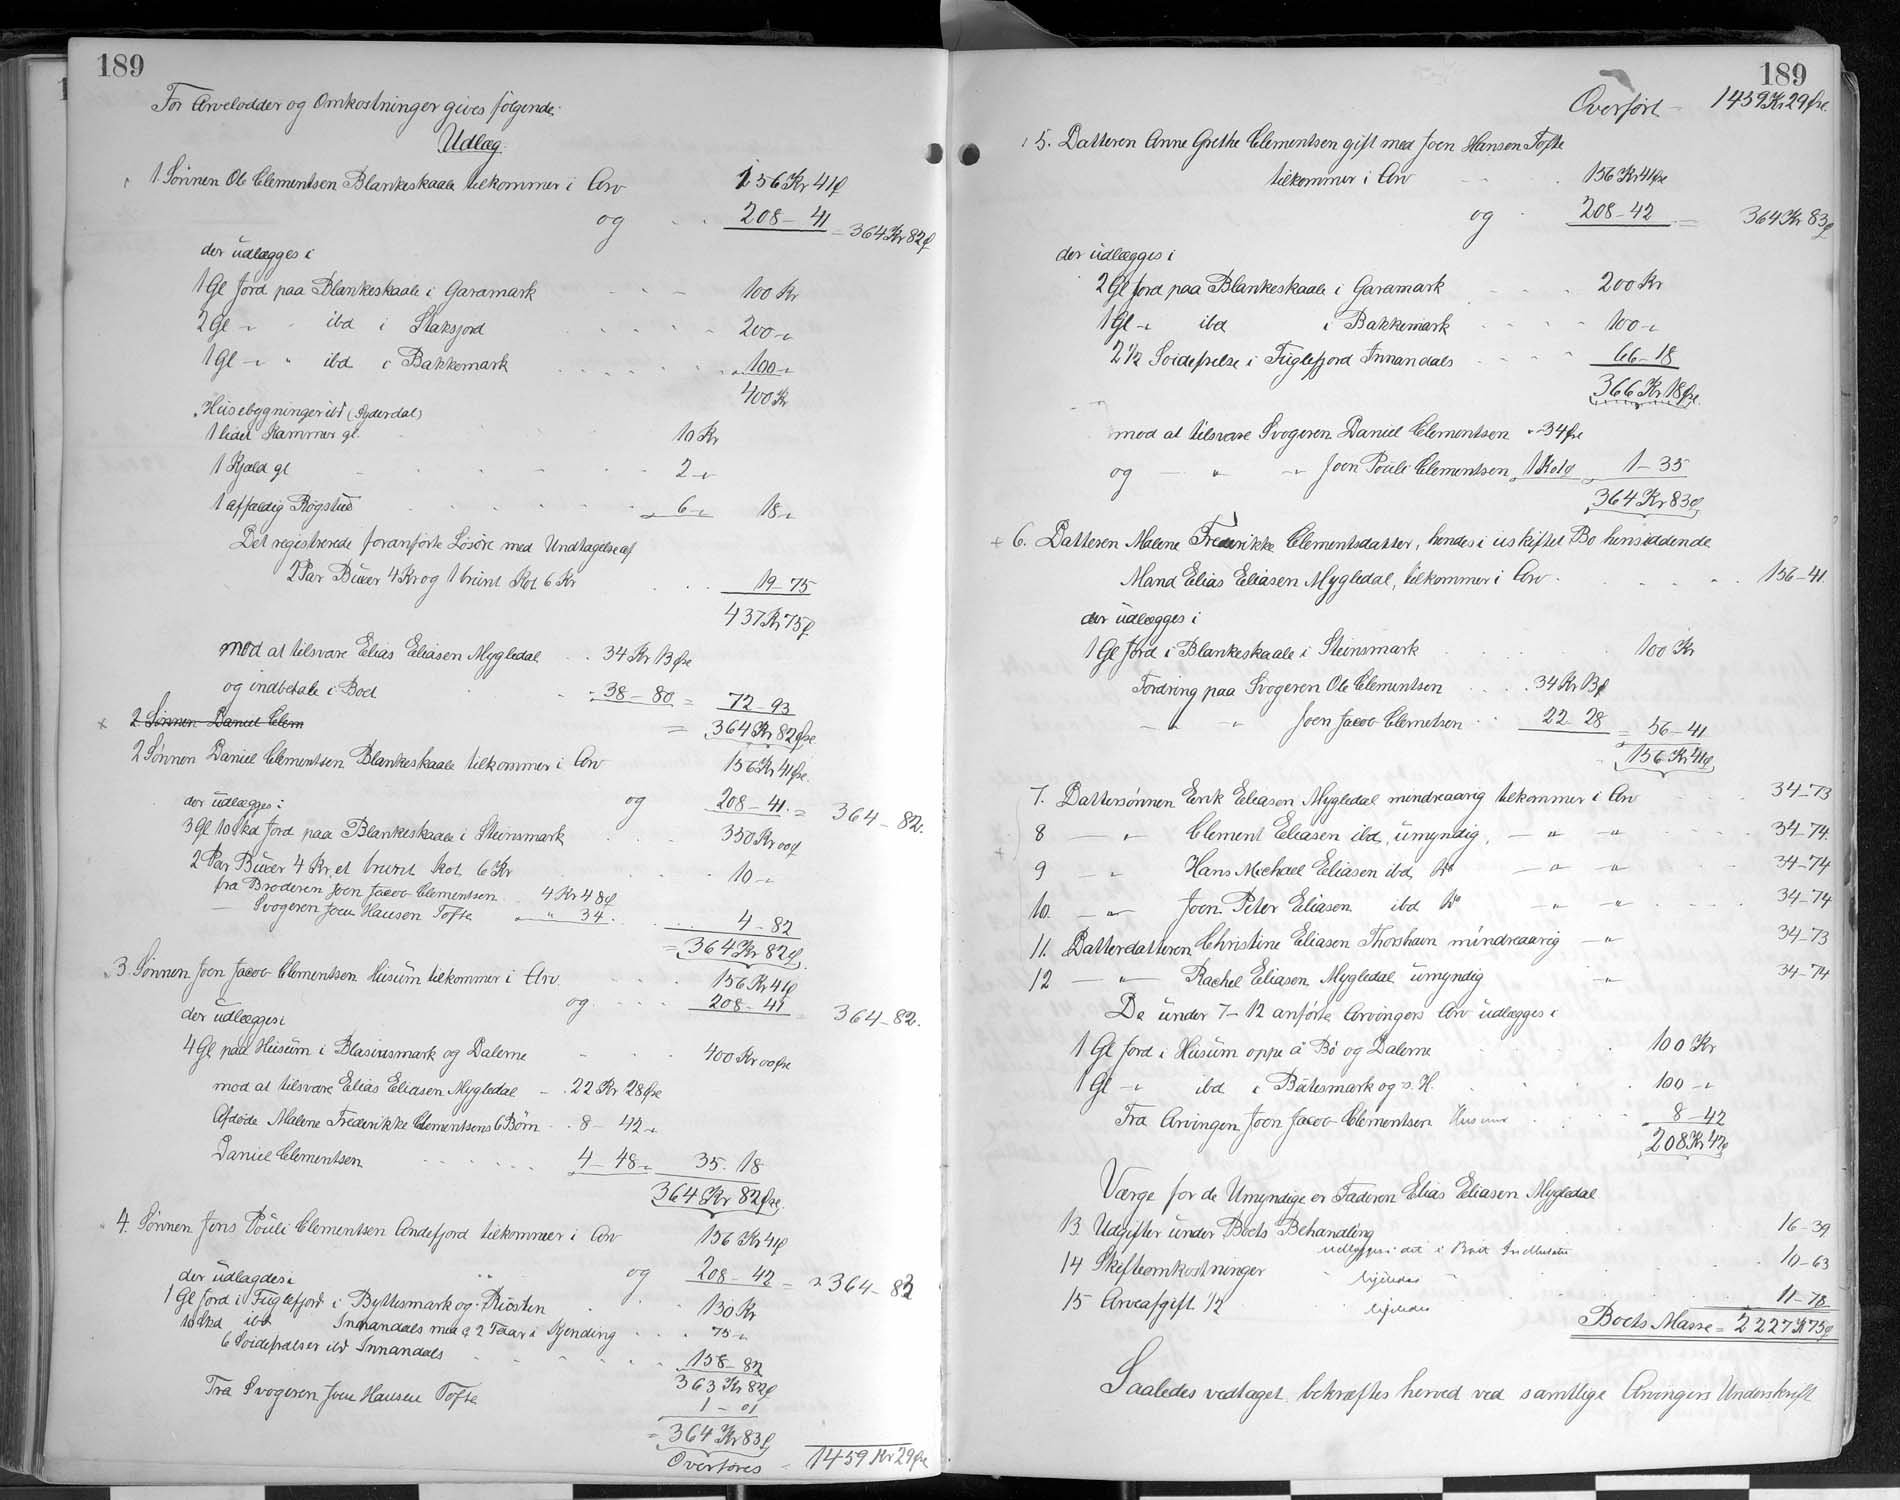 189
For Arvelodder og Omkostninger gives følgende
Udlæg.
1 Sønnen Ole Clementsen Blankeskaale tilkommer i Arv 156 Kr 41 ø
og 208 - 41 = 364 Kr 82 ø
der udlægges i
1 Gl Jord paa Blankeskaale i Garamark 100 Kr
2 Gl - " ibd i Staksjord 200 - "
1 Gl - " " ibd i Bakkemark 100 - "
400 Kr
Husebygninger ibd (Syderdal)
1 lidet Kammer gl. 10 Kr
1 Kjæld gl 2 - "
1 affældig Røgstue 6 - " 18 - "
Det registrerede foranførte Løsøre med Undtagelse af
2 Par Buxer 4 Kr og 1 brunt Kot 6 Kr 19 - 75
437 Kr 75 ø
mod at tilsvare Elias Eliasen Mygledal 34 Kr 13 Øre
og indbetale i Boet 38 - 80 = 72 - 93
2. Sønnen Daniel Clem
= 364 Kr 82 Øre
2 Sønnen Daniel Clementsen Blankeskaale tilkommer i Arv 156 Kr 41 Øre
og 208 - 41 = 364 - 82.
der udlægges i
3 Gl 10 Skd Jord paa Blankeskaale i Steinsmark 350 Kr 00 ø
2 Par Buxer 4 Kr, et brunt Kot 6 Kr 10 - "
fra Broderen Joen Jacob Clementsen 4 Kr 48 ø
- Svogeren Joen Hansen Tofte " 34. 4 - 82
= 364 Kr 82 ø.
3. Sønnen Joen Jacob Clementsen Husum tilkommer i Arv 156 Kr 41 ø
og 208 - 41 = 364 - 82.
der udlægges i
4 Gl paa Husum i Blasiusmark og Dalerne 400 Kr 00 Øre
mod at tilsvare Elias Eliasen Mygledal - 22 Kr 28 Øre
Afdøde Malene Frederikke Clementsens 6 Børn 8 - 42 "
Daniel Clementsen 4 - 48 " 35 - 18
364 Kr 82 Øre.
4. Sønnen Jens Pouli Clementsen Andefjord tilkommer i Arv 156 Kr 41 ø
og 208 - 42 = 364 - 83
der udlagdes i
1 Gl Jord i Fuglefjord i Byttesmark og Riosten 130 Kr
10 Skd ibd Innandals med 2 Faar i Kjending 75 - "
6 Soidefrelser ibd Innandals 158 - 82
363 Kr 82 ø
Fra Svogeren Joen Hansen Tofte 1 - 01
= 364 Kr 83 ø
Overføres 1459 Kr 29 Øre
189
Overført - 1459 Kr 29 Øre.
5. Datteren Anne Grethe Clementsen gift med Joen Hansen Tofte
tilkommer i Arv 156 Kr 41 Øre
og 208 - 42 = 364 Kr 83 ø
der udlægges i
2 Gl Jord paa Blankeskaale i Garamark 200 Kr
1 Gl - " ibd i Bakkemark 100 - "
2 1/2 Soidefrelse i Fuglefjord Innandals 66 - 18
366 Kr 18 Øre.
mod at tilsvare Svogeren Daniel Clementsen " - 34 Øre
og - " - " Joen Pouli Clementsen 1 Kr 01 ø 1 - 35
364 Kr 83 ø
6. Datteren Malene Frederikke Clementsdatter, hendes i uskiftet Bo hensiddende
Mand Elias Eliasen Mygledal, tilkommer i Arv 156 - 41.
der udlægges i
1 Gl Jord i Blankeskaale i Steinsmark 100 Kr
Fordring paa Svogeren Ole Clementsen 34 Kr 13 ø
- " - " Joen Jacob Clemetsen 22 - 28 = 56 - 41
156 Kr 41 ø
7. Dattersønnen Eerik Eliasen Mygledal mindreaarig tilkommer i Arv 34 - 73
8 - " Clement Eliasen ibd, umyndig, - " - " 34 - 74.
9 - " Hans Michael Eliasen ibd, do - " - " 34 - 74
10. - " Joen Peter Eliasen ibd do - " - " 34 - 74
11. Datterdatteren Christine Eliasen Thorshavn mindreaarig - " 34 - 73
12 - " - Rachel Eliasen Mygledal umyndig " 34 - 74
De under 7 - 12 anførte Arvingers Arv udlægges i
1 Gl Jord i Husum oppe á Bø og Dalerne 100 Kr
1 Gl - " ibd i Bátesmark og s. H. 100 - "
Fra Arvingen Joen Jacob Clementsen Husum 8 - 42
208 Kr 42 ø
Værge for de Umyndige er Faderen Elias Eliasen Mygledal
13. Udgifter under Boets Behandling 16 - 39
udlægges i det i Boet Indbetalte
14 Skifteomkostninger ligeledes 10 - 63
15 Arveafgift 1/2 ligeledes 11 - 78
Boets Masse = 2227 Kr 75 ø
Saaledes vedtaget bekræftes herved ved samtlige Arvingers Underskrift